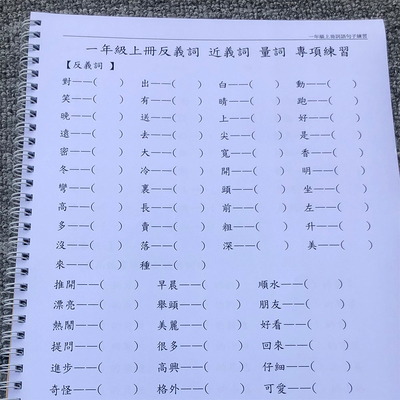 一年級上冊詞語句子練習
一年級上冊反義詞 近義詞 量詞 專項練習
【反義詞】
對——( ) 出——( ) 白——( ) 動——( )
笑——( ) 有——( ) 晴——( ) 跑——( )
晚——( ) 送——( ) 上——( ) 好——( )
遠——( ) 去——( ) 尖——( ) 是——( )
密——( ) 大——( ) 寬——( ) 香——( )
冬——( ) 冷——( ) 開——( ) 明——( )
彎——( ) 裏——( ) 頭——( ) 坐——( )
高——( ) 長——( ) 前——( ) 左——( )
多——( ) 賣——( ) 粗——( ) 升——( )
沒——( ) 落——( ) 深——( ) 美——( )
來——( ) 種——( )
推開——( ) 早晨——( ) 順水——( )
漂亮——( ) 舉頭——( ) 朋友——( )
熱鬧——( ) 美麗——( ) 好看——( )
提問——( ) 很多——( ) 回來——( )
進步——( ) 高興——( ) 仔細——( )
奇怪——( ) 格外——( ) 可愛——( )